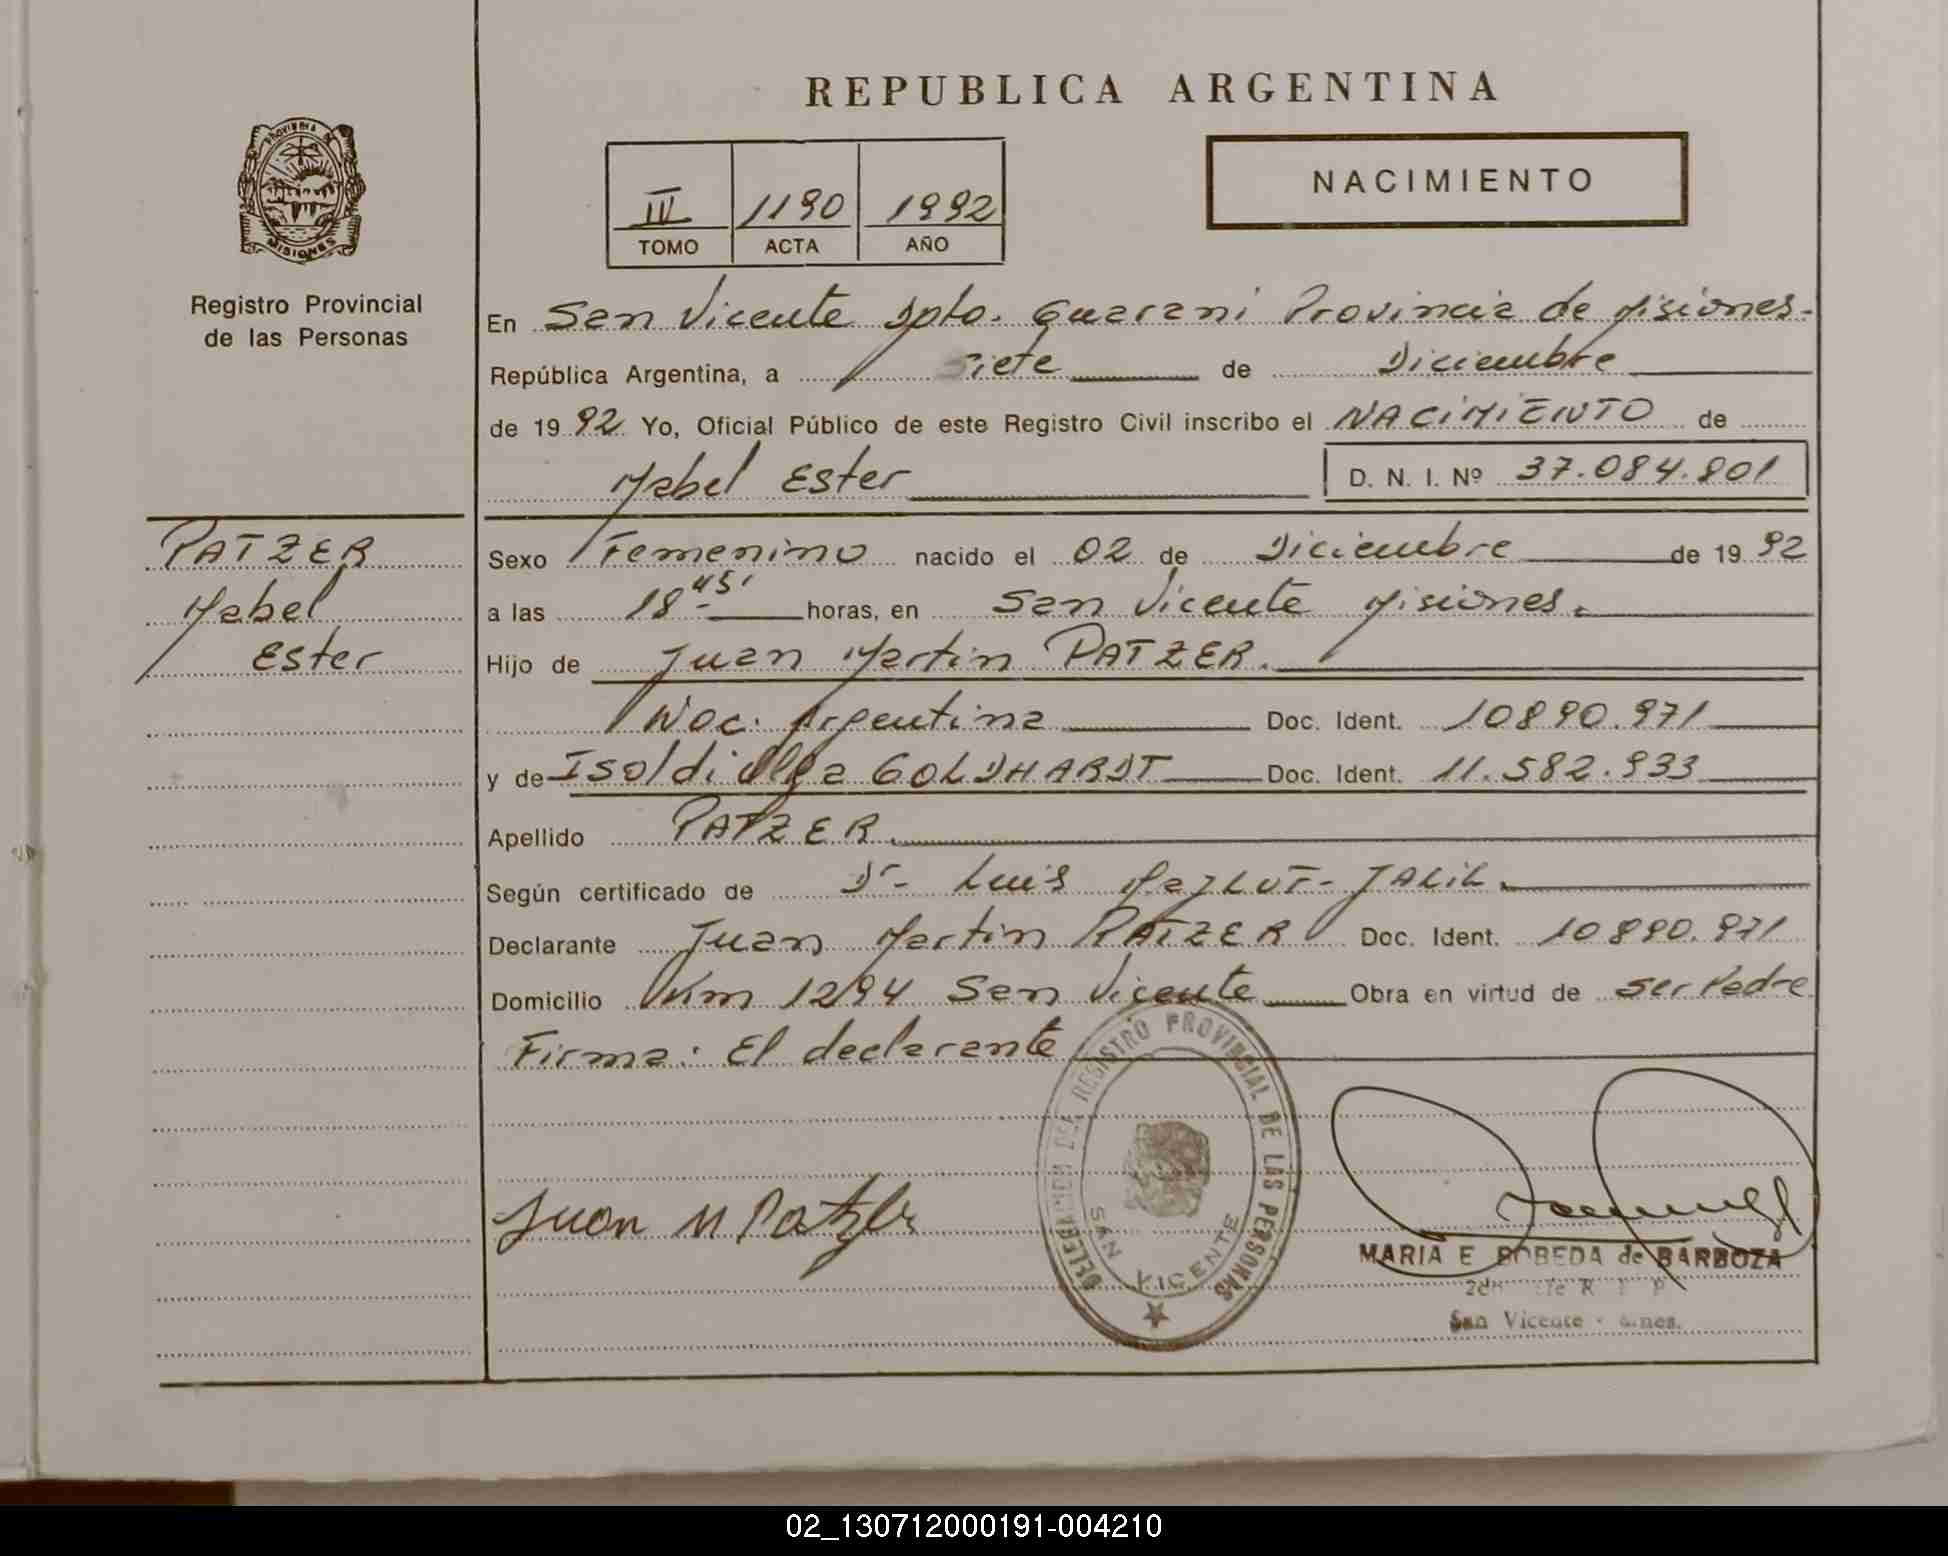 REPUBLICA ARGENTINA
PROVINCIA DE
MISIONES
Registro Provincial
de las Personas
III 1190 1992
TOMO ACTA AÑO
NACIMIENTO
En San Vicente Dpto. Guarani Provincia de Misiones.
República Argentina, a Siete de Diciembre
de 1992 Yo, Oficial Público de este Registro Civil inscribo el NACIMIENTO de
Mabel Ester D. N. I. Nº 37.084.801
PATZER
Mabel
Ester
Sexo Femenino nacido el 02 de Diciembre de 1992
a las 18 45' horas, en San Vicente Misiones.
Hijo de Juan Martin PATZER.
Nac. Argentina Doc. Ident. 10890.971
y de Isoldi Olga GOLDHARDT Doc. Ident. 11.582.933
Apellido PATZER.
Según certificado de Dr. Luis JALIL.
Declarante Juan Martin PATZER Doc. Ident. 10890.971
Domicilio Km 1294 San Vicente Obra en virtud de ser Padre
Firma: El declarante
Juan M Patzer
DELEGACION DEL REGISTRO PROVINCIAL DE LAS PERSONAS
SAN VICENTE
MARIA E BOBEDA de BARBOZA
San Vicente
02_130712000191-004210